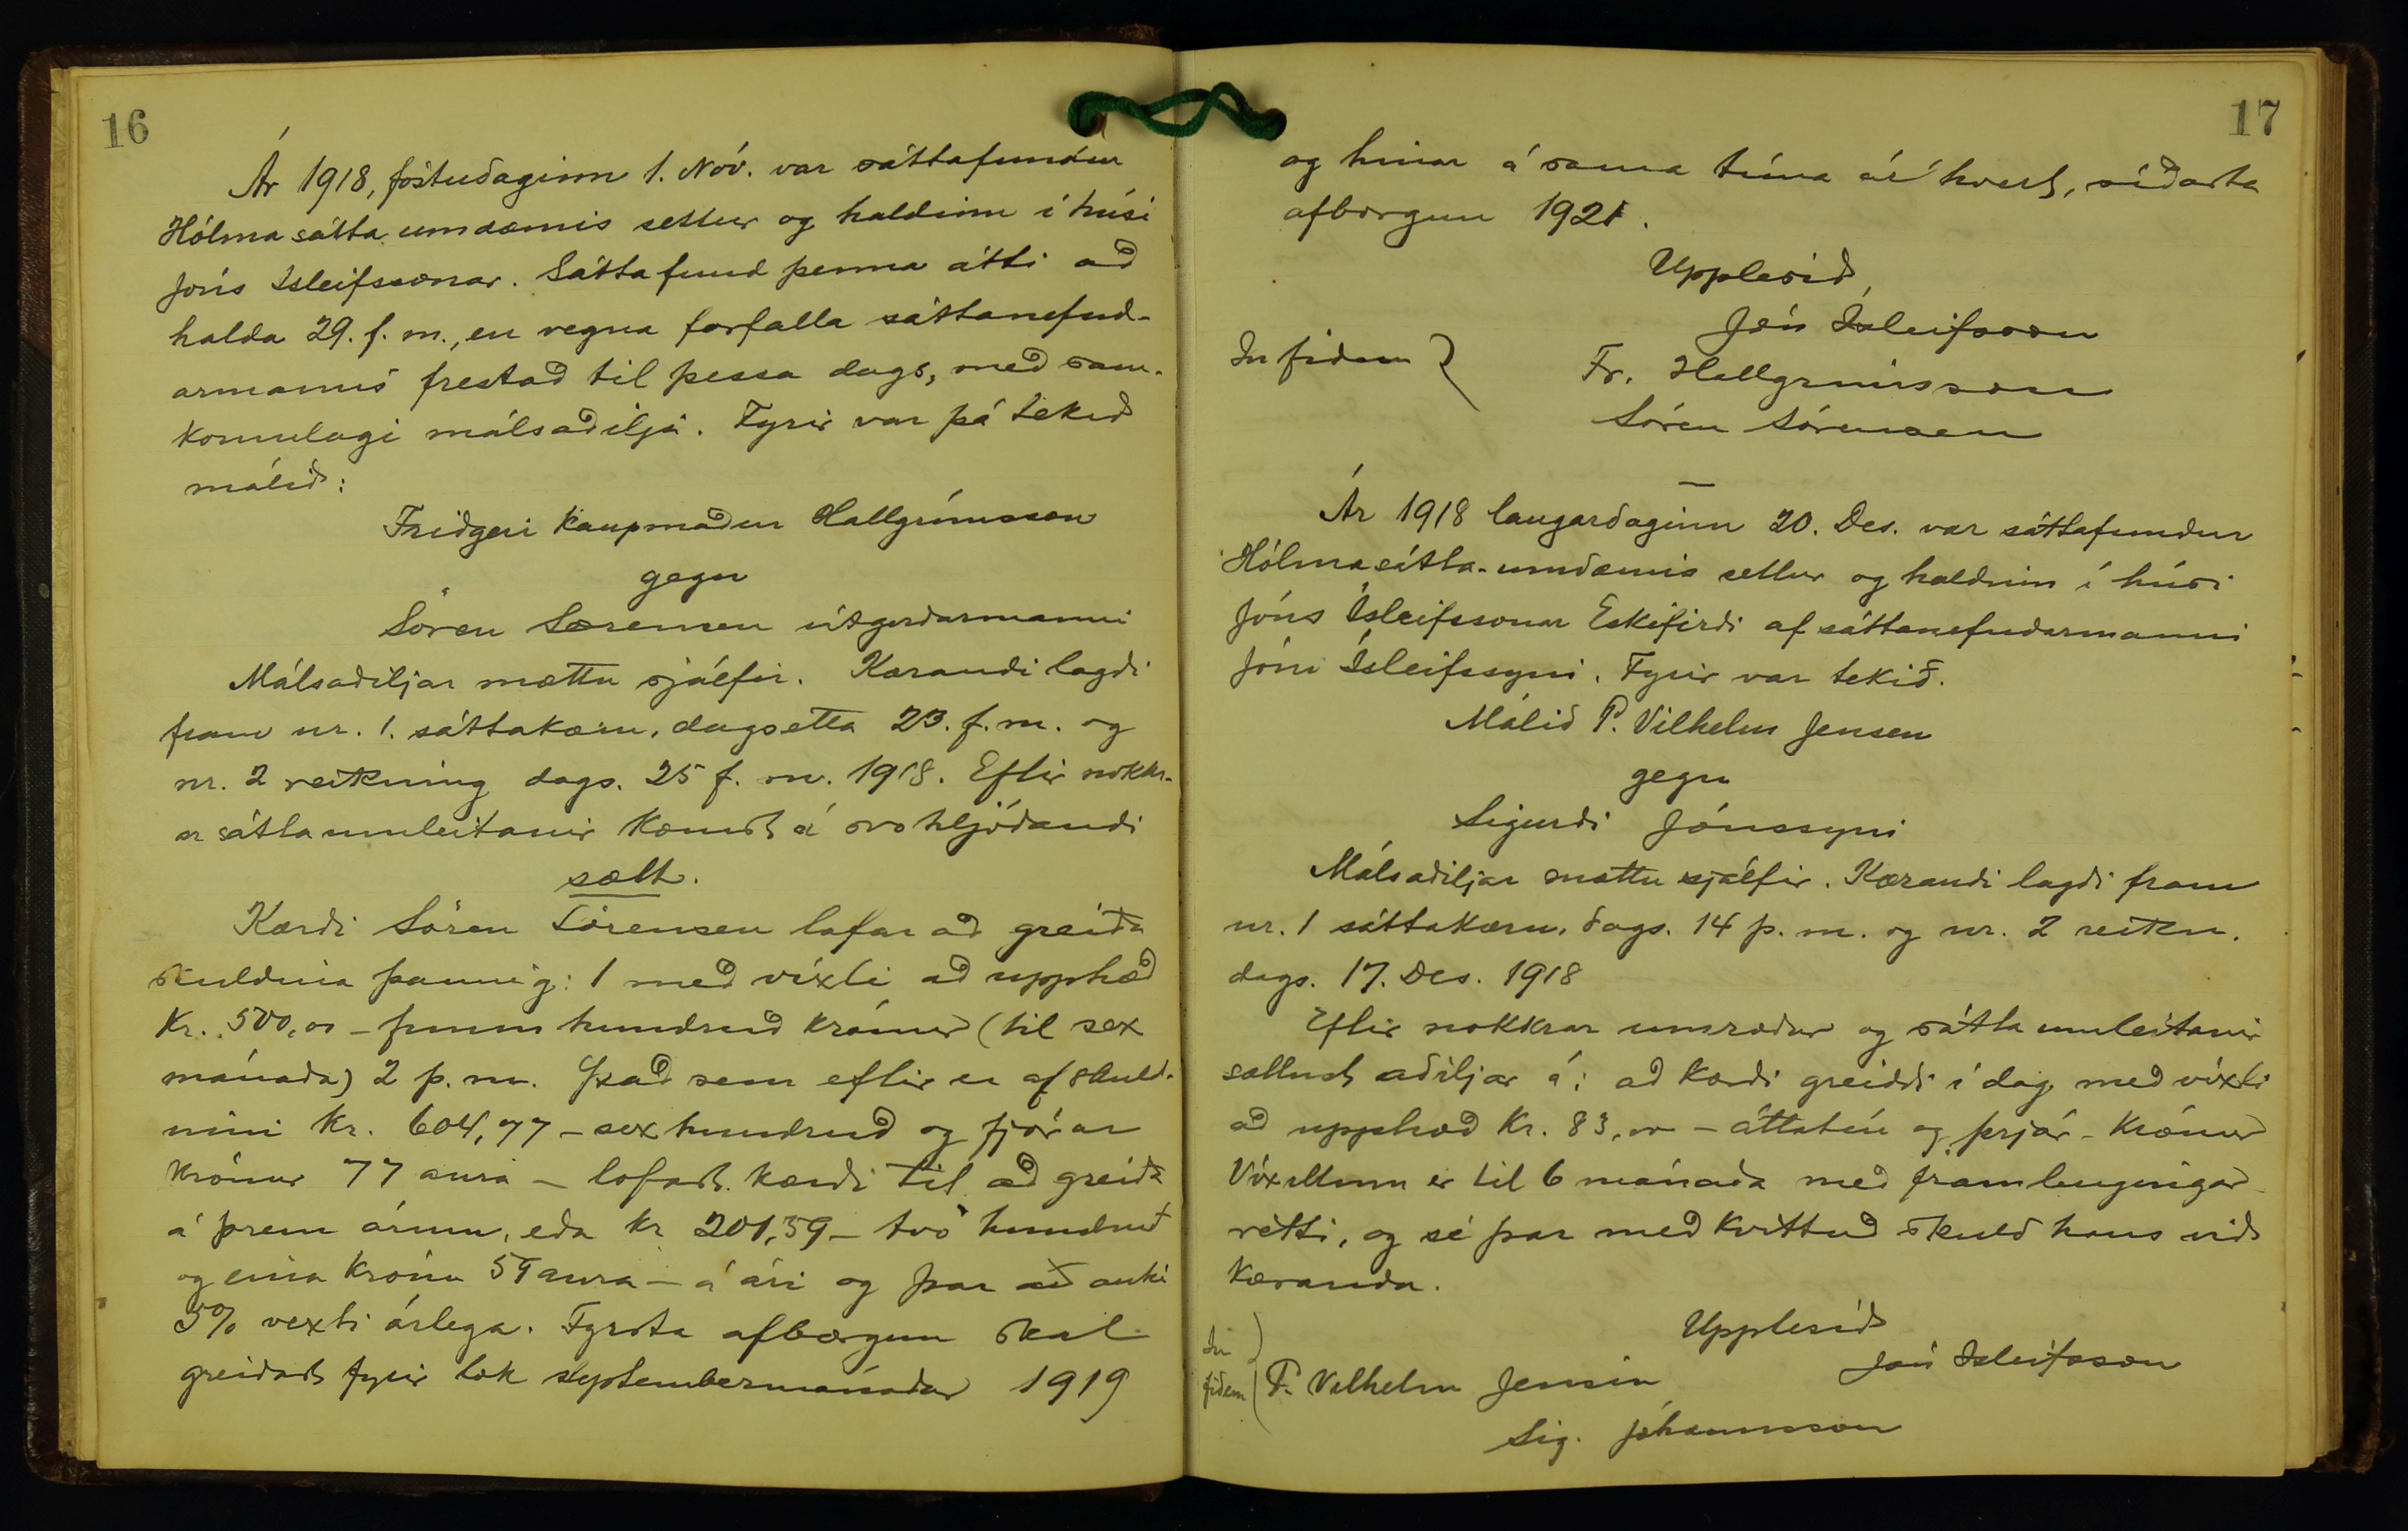 16
Ár 1918, föstudaginn 1. Nóv. var sáttafundur
Hólmasátta umdæmis settur og haldinn í húsi
Jóns Ísleifssonar. Sáttafund þenna átti að
halda 29. f. m., en vegna forfalla sáttanefnd-
armanns frestað til þessa dags, með sam-
komulagi málsaðilja. Fyrir var þá tekið
málið:
Friðgeir kaupmaður Hallgrímsson
gegn
Sören Sørensen útgerðarmanni
Málsaðiljar mættu sjálfir. Kærandi lagði
fram nr. 1. sáttakæru, dagsetta 23. f. m. og
nr. 2 reikning dags. 25 f. m. 1918. Eftir nokkr-
ar sáttaumleitanir komst á svohljóðandi
sætt.
Kærði Sören Sörensen lofar að greiða
skuldina þannig: 1 með víxli að upphæð
Kr. 500,00 – fimm hundruð krónur (til sex
mánaða) 2 þ. m. Það sem eftir er af skuld-
inni Kr. 604,77 – sex hundruð og fjórar
krónur 77 aura – lofast kærði til að greiða
á þrem árum, eða kr 201,59 – tvö hundruð
og eina krónu 59 aura – á ári og þar að auki
5% vexti árlega. Fyrsta afborgun skal
greiðast fyrir lok septembermánaðar 1919
17
og hinar á sama tíma ár hvert, síðasta
afborgun 1921.
Upplesið,
Jón Ísleifsson
In fidem
Fr. Hallgrímsson
Sören Sörensen
Ár 1918 laugardaginn 20. Des. var sáttafundur
Hólmasátta-umdæmis settur og haldinn í húsi
Jóns Ísleifssonar Eskifirði af sáttanefndarmanni
Jóni Ísleifssyni. Fyrir var tekið.
Málið P. Vilhelm Jensen
gegn
Sigurði Jónssyni
Málsaðiljar mættu sjálfir. Kærandi lagði fram
nr. 1 sáttakæru, dags. 14 þ. m. og nr. 2 reikn.
dags. 17. Des. 1918
Eftir nokkrar umræður og sáttaumleitanir
sættust aðiljar á: að kærði greiddi í dag með víxli
að upphæð Kr. 83,00 – áttatíu og þrjár – krónur
Víxillinn er til 6 mánaða með framlengingar-
rétti, og sé þar með kvittuð skuld hans við
kæranda.
Upplesið
Jón Ísleifsson
In
fidem
P. Vilhelm Jensen
Sig. Jóhannsson